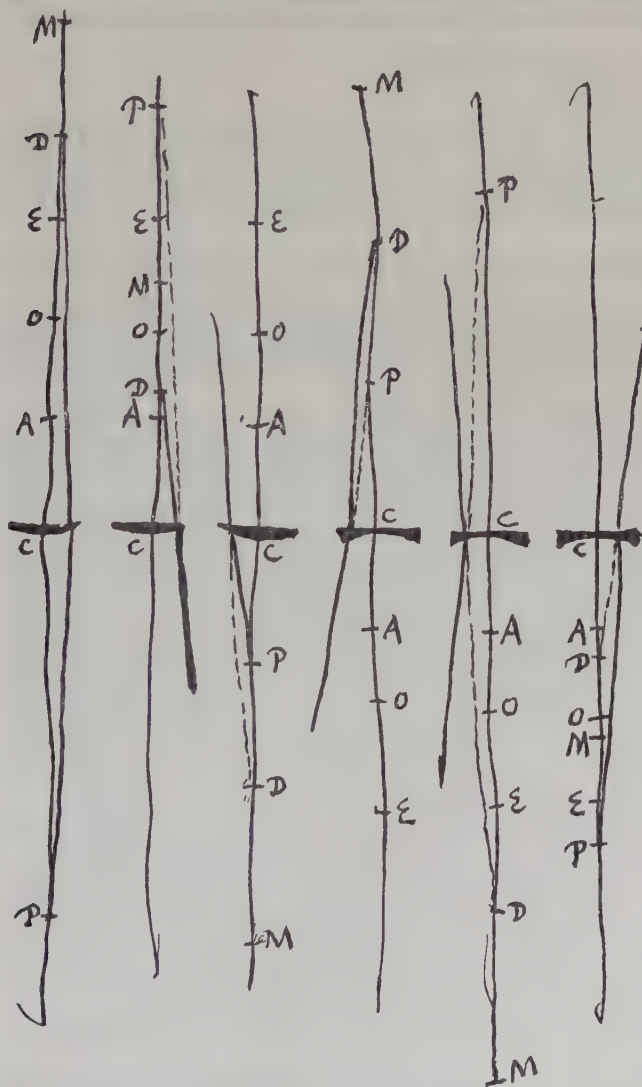 M
D
E
O
A
C
P
P
E
M
O
D
A
C
E
O
A
C
P
D
M
M
D
P
C
A
O
E
P
C
A
O
E
D
M
C
A
D
O
M
E
P